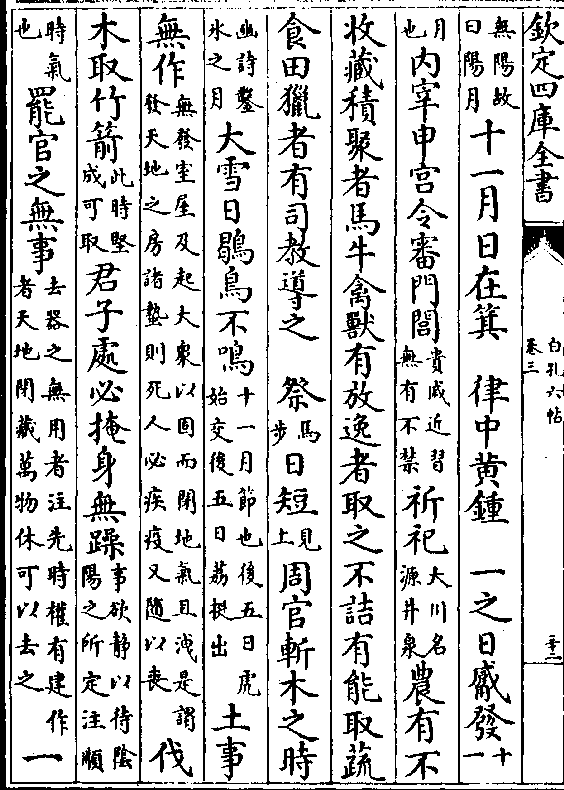 欽定四庫全書
白孔六帖
卷三
三十二
無陽故曰陽月十一月日在箕　律中黄鍾　一之日觱發十一
月也内宰申宫令審門閭貴戚近習無有不禁祈祀大川名源井泉農有不
收藏積聚者馬牛禽獸有放逸者取之不詰有能取蔬
食田獵者有司教導之　祭馬步日短見上周官斬木之時
豳詩鑿氷之月大雪日鶡鳥不鳴十一月節也後五日虎始交後五日荔挺出土事
無作無發室屋及起大衆以固而閉地氣且洩是謂發天地之房諸蟄則死人必疾疫又隨以喪伐
木取竹箭此時堅成可取君子處必掩身無躁事欲静以待陰陽之所定注順
時氣也罷官之無事去器之無用者注先時權有建作者天地閉藏萬物休可以去之一